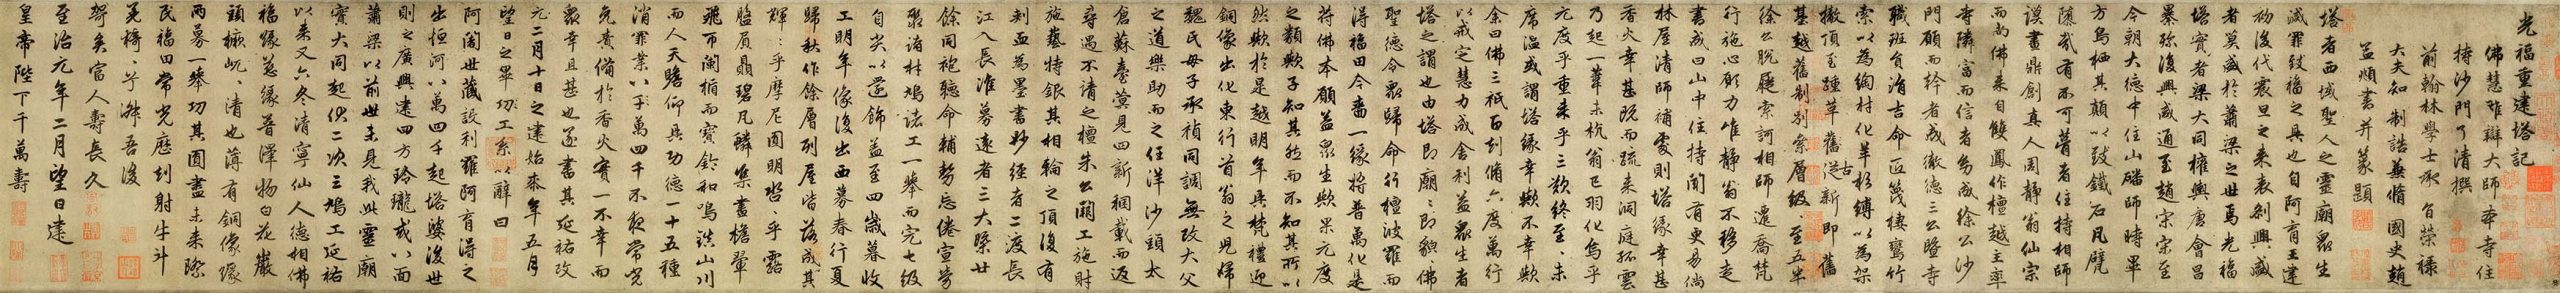 光福重建塔記
佛慧雄辯大師本寺住
持沙門了清撰
前翰林學士承旨榮祿
大夫知制誥兼脩國史趙
孟頫書并篆題
塔者西域聖人之靈廟眾生
滅罪致福之具也自阿育王建
初後代震旦之來表剎興盛
者莫盛於蕭梁之世焉光福
塔實者梁大同權輿唐會昌
暴殄後興咸通至趙宋宗至
今朝大德中住山磻師時畢
方烏栖其顛以致鐵石凡甓
隳哉有不可瞢者住持相師
謨畫鼎創真人周靜翁仙宗
而尚佛來自雙鳳作檀越主率
寺隣富而信者多咸徐公沙
門願而幹者咸徹德三公暨寺
職班負涓吉命匠篾棲鸞竹
索以為綯材化羊杉縛以為架
撤頂至踵革舊從新即舊
基越舊制別索層級至五半
徐公脫屣索訶相師還喬梵
行施心願力唯靜翁不移走
書咸曰山中住持闕有更易倘
林屋清師補處則塔緣幸甚
香火幸甚既而疏來洞庭孤雲
乃起一葦未杭翁已羽化烏乎
元度乎重來乎三歎終至未
席溫或謂塔緣幸歟不幸歟
余曰佛三祇百劫脩六度萬行
以戒定慧力成舍利益眾生者
塔之謂也由塔即廟廟即貌佛
聖德令眾歸命行檀波羅而
得福田今番一緣將普萬化是
符佛本願益眾生歟果元度
之類歟子知其然而不知其所以
然歟於是越明年具梵禮迎
銅像出化東行首翁之兒婦
魏氏母子承禎同調無改大父
之道樂助而之任洋沙頭太
倉蘇臺萱見四新稇載而返
尋遇不請之檀朱公關工施財
施藝特銀其相輪之頂後有
刺血為墨書妙經者二渡長
江入長淮募遠者三大檗廿
餘同袍聽命輔勢忘倦宣勞
聚諸材鳩諸工一舉而完七級
自尖以還飾蓋至四歲暮收
工明年像後出西募春行夏
歸秋作餘層列屋皆落成其
輝輝乎摩尼圓明呰呰乎露
盤屓贔碧凡鱗集畫檐翬
飛而闌楯而寶鈴和鳴鎮山川
而人天瞻仰具功德一十五種
消罪業八萬四千不夜常光
免責備於香火實一不幸而
眾幸且甚也遂書其延祐改
元二月十日之建始泰年五月
望日之畢功工系以辭曰
阿闍世藏設利羅阿育得之
出恒河八萬四千起塔婆後世
則之廣興建四方玲瓏或八面
蕭梁以前世未見我此靈廟
實大同起仆二次三鳩工延祐
以來又六冬清寧仙人德相佛
福緣慈緣普澤物白花巖
頭撅屼屼清也薄有銅像璨
兩募一舉功其圓盡未來際
民福田常光歷劫射牛斗
毫椅乎漪吾後
努矣富人壽長久
至治元年二月望日建
皇帝陛下千萬壽